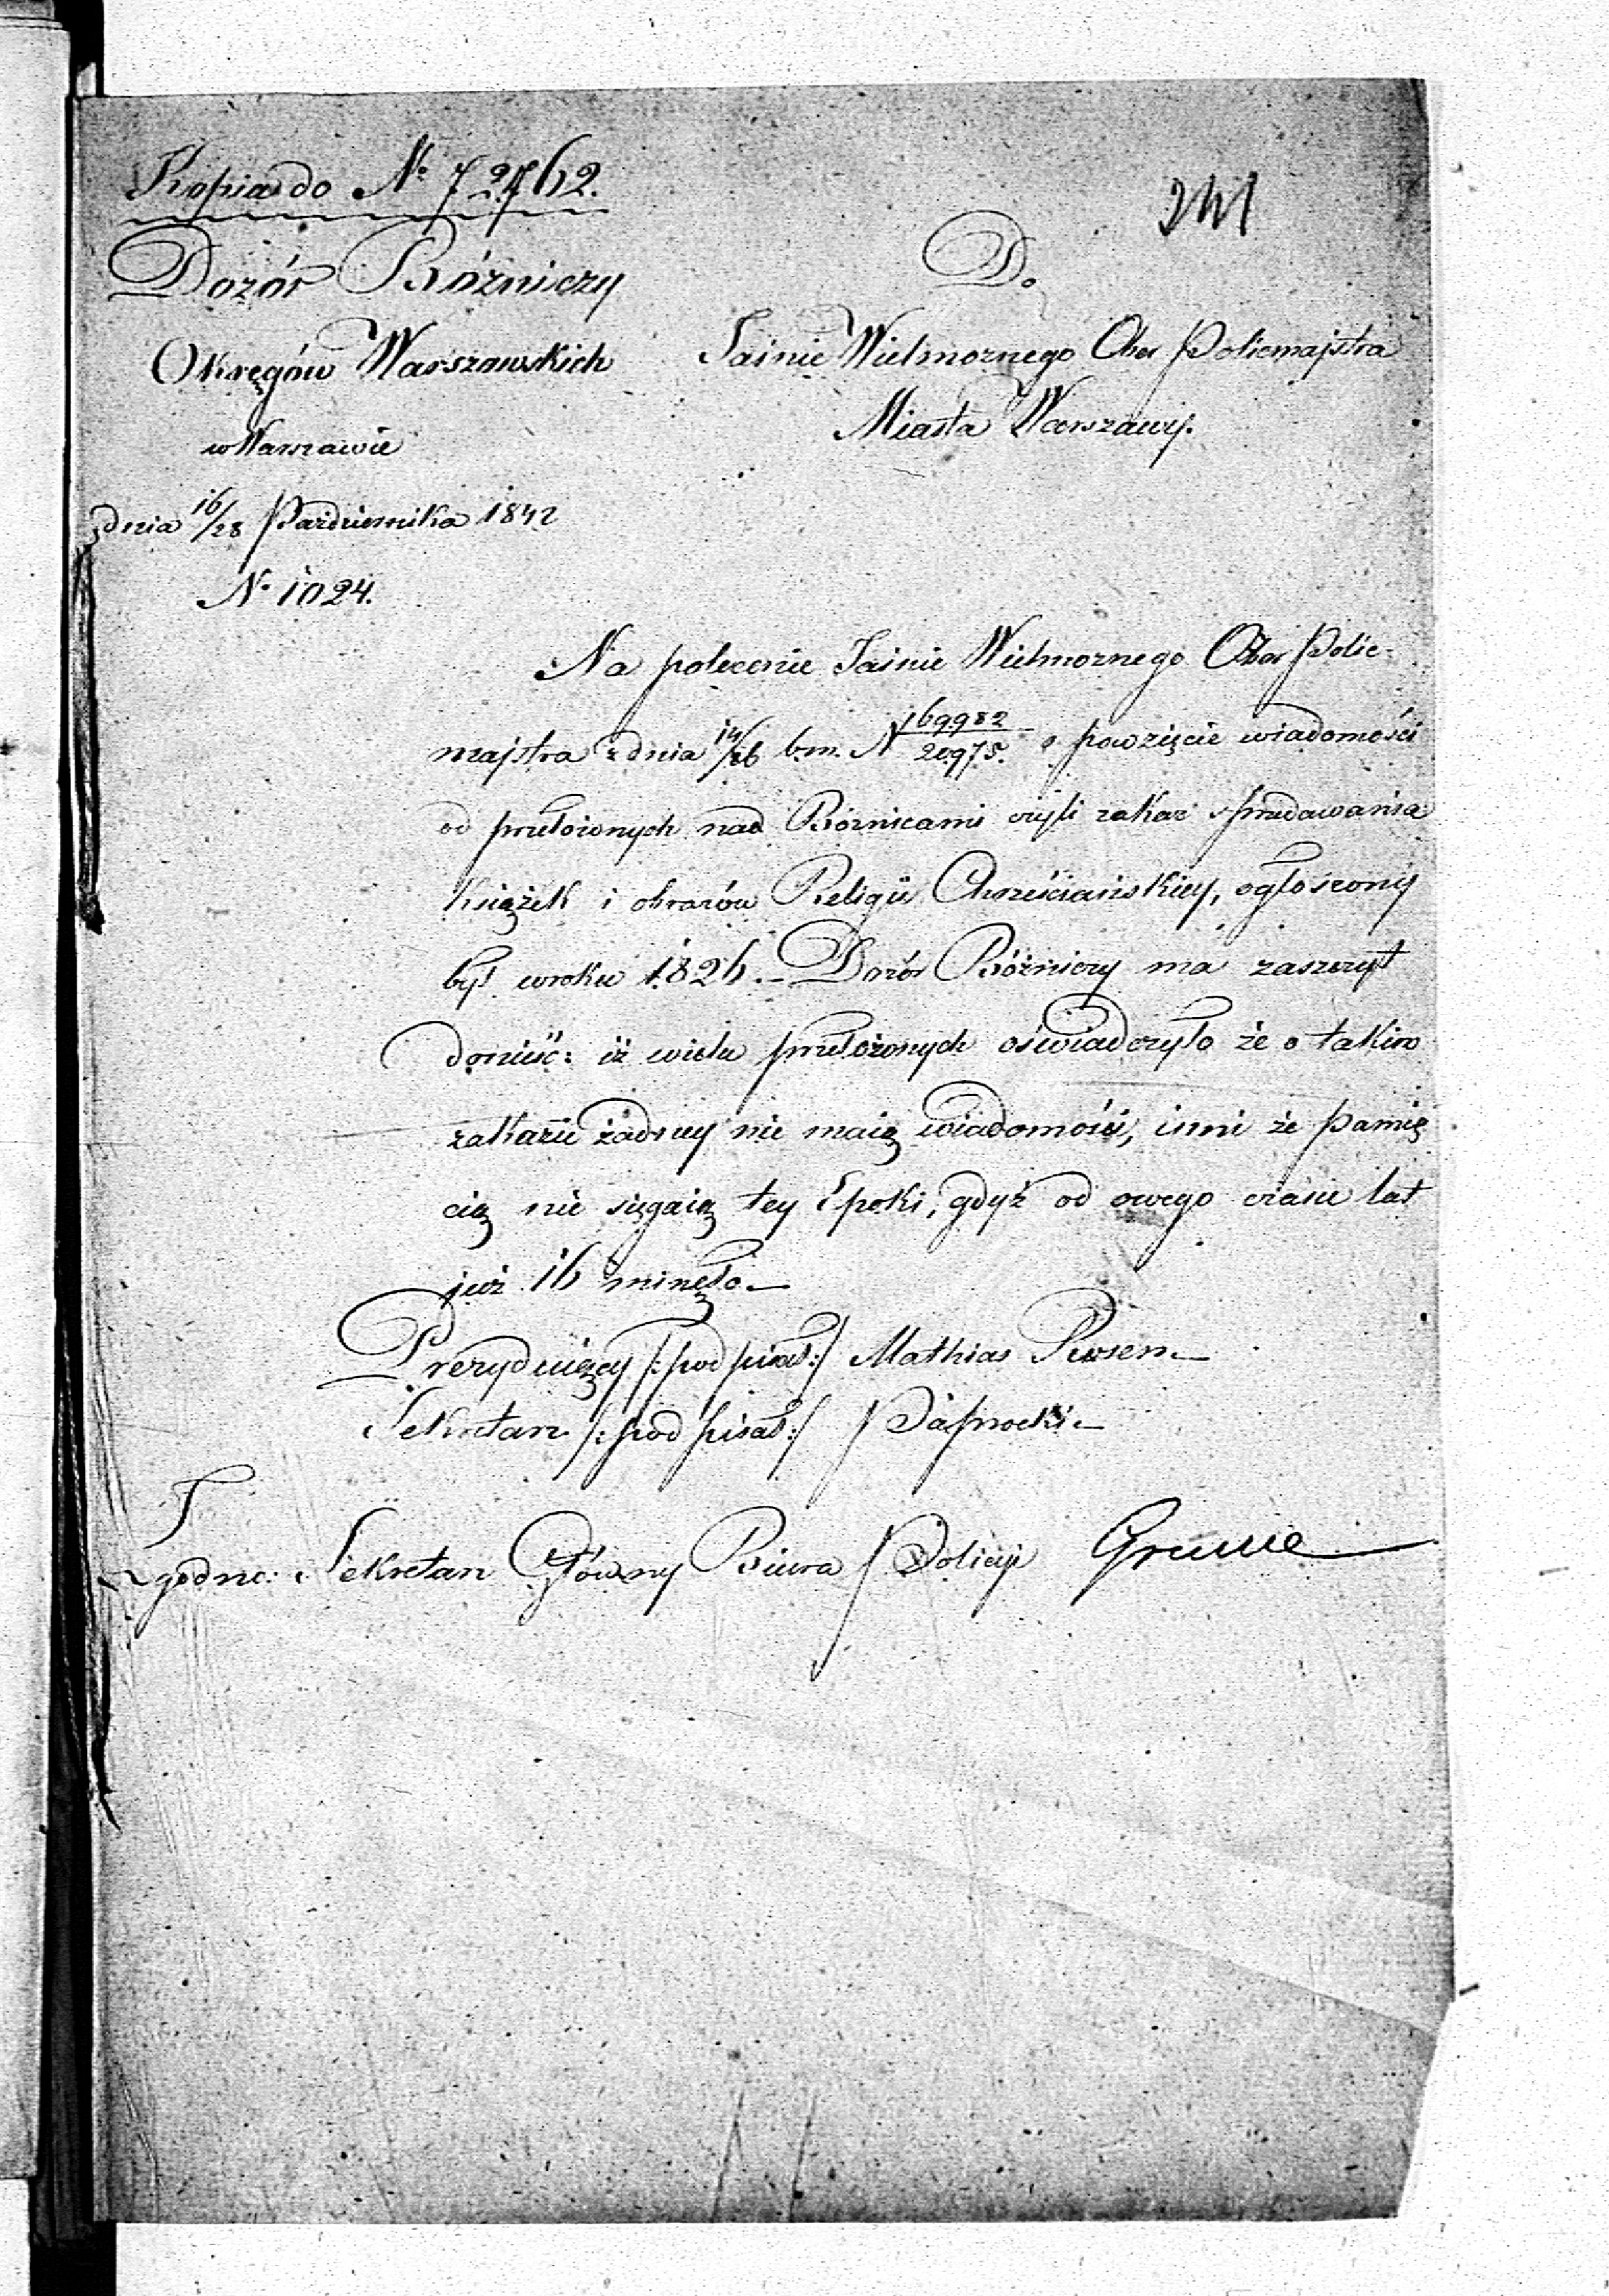 Kopia do N. 72762.
241
Dozór Bóżniczy
Okręgów Warszawskich
w Warszawie
dnia 16/28 Października 1842
N. 1024.
Do
Jaśnie Wielmożnego Ober Policmajstra
Miasta Warszawy.
Na polecenie Jaśnie Wielmożnego Ober Polic-
majstra z dnia 14/26 b.m. N 169982/20975. o powzięcie wiadomości
od przełożonych nad Bóżnicami czyli zakaz sprzedawania
książek i obrazów Religii Chrześciańskiey, ogłoszony
był w roku 1826. – Dozór Bóżniczy ma zaszczyt
donieść: iż wielu przełożonych oświadczyło że o takim
zakazie żadney nie maią wiadomości, inni że pamię
cią nie sięgaią tey Epoki, gdyż od owego czasu lat
już 16 minęło –
Prezyduiący /:podpisał:/ Mathias Rosen –
Sekretarz /:podpisał:/ Paprocki –
Zgodno: Sekretarz Główny Biura Policyi